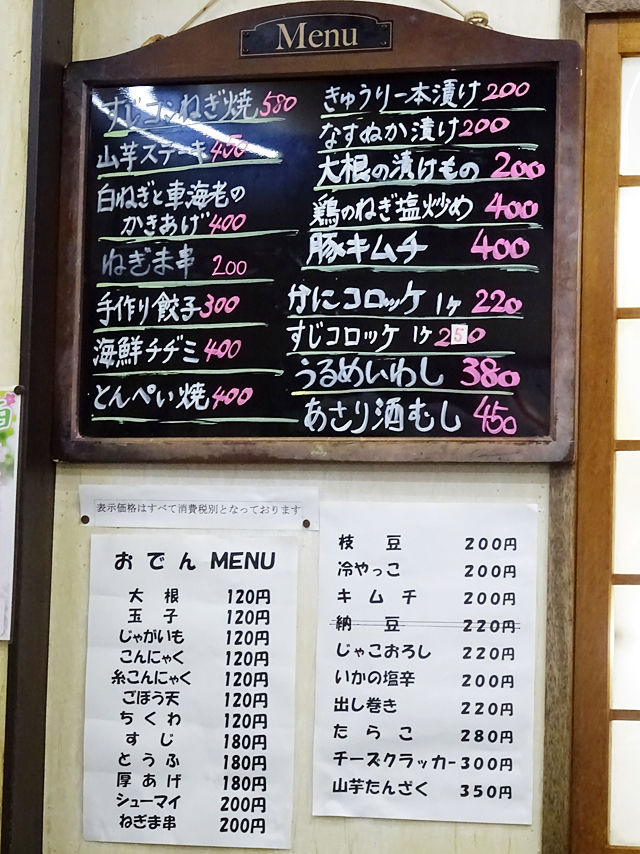 Menu
すじコンねぎ焼 580
山芋ステーキ 450
白ねぎと車海老の
かきあげ 400
ねぎま串 200
手作り餃子 300
海鮮チヂミ 400
とんぺい焼 400
きゅうり一本漬け 200
なすぬか漬け 200
大根の漬けもの 200
鶏のねぎ塩炒め 400
豚キムチ 400
かにコロッケ 1ヶ 220
すじコロッケ 1ケ 250
うるめいわし 380
あさり酒むし 450
表示価格はすべて消費税別となっております
おでん MENU
大根 120円
玉子 120円
じゃがいも 120円
こんにゃく 120円
糸こんにゃく 120円
ごぼう天 120円
ちくわ 120円
すじ 180円
とうふ 180円
厚あげ 180円
シューマイ 200円
ねぎま串 200円
枝豆 200円
冷やっこ 200円
キムチ 200円
納豆 220円
じゃこおろし 220円
いかの塩辛 200円
出し巻き 220円
たらこ 280円
チーズクラッカー 300円
山芋たんざく 350円